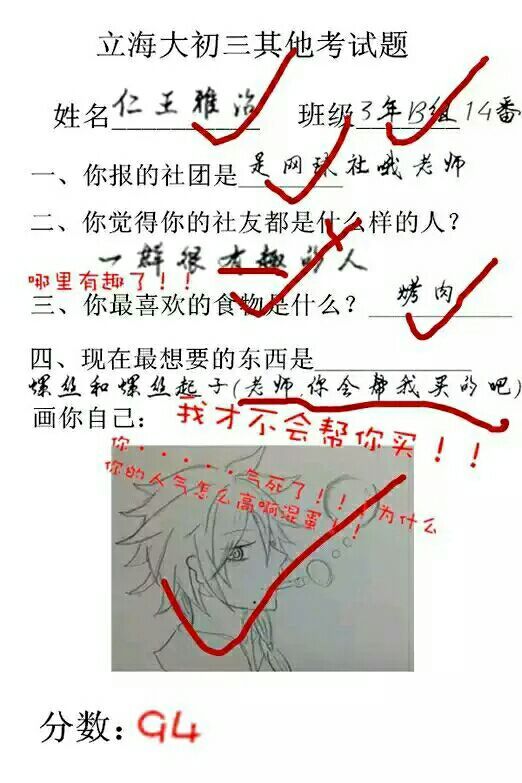 立海大初三其他考试题
姓名仁王雅治 班级3年B组14番
一、你报的社团是是网球社哦老师
二、你觉得你的社友都是什么样的人？
一群很有趣的人
哪里有趣了！！
三、你最喜欢的食物是什么？烤肉
四、现在最想要的东西是
螺丝和螺丝起子(老师你会帮我买的吧)
画你自己：我才不会帮你买！！
你．．．．．气死了！！！为什么
你的人气怎么高啊混蛋！！
分数：94